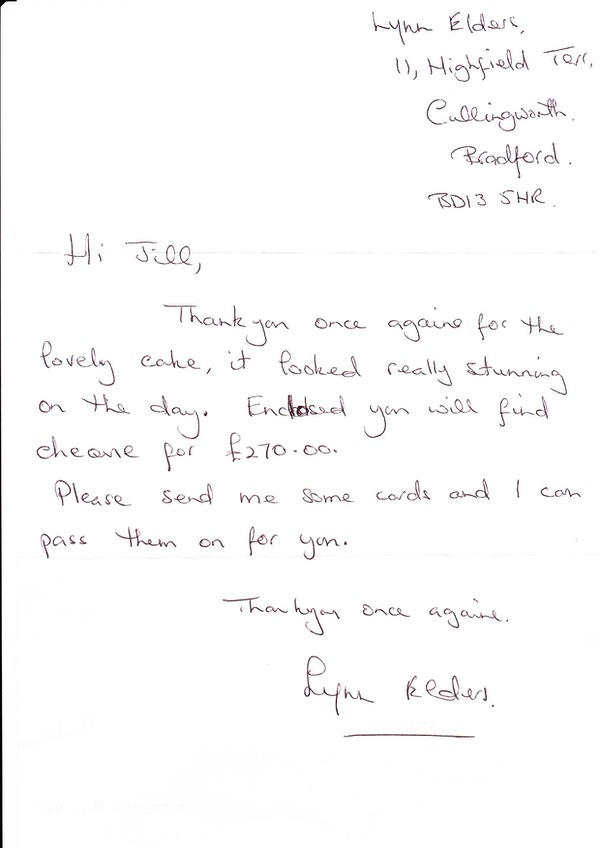 Lynn Elders,
11, Highfield Terr,
Cullingworth.
Bradford.
BD13 5HR.
Hi Jill,
Thankyou once againe for the
lovely cake, it looked really stunning
on the day. Enclosed you will find
cheque for £270.00.
Please send me some cards and I can
pass them on for you.
Thankyou once againe.
Lynn Elders.